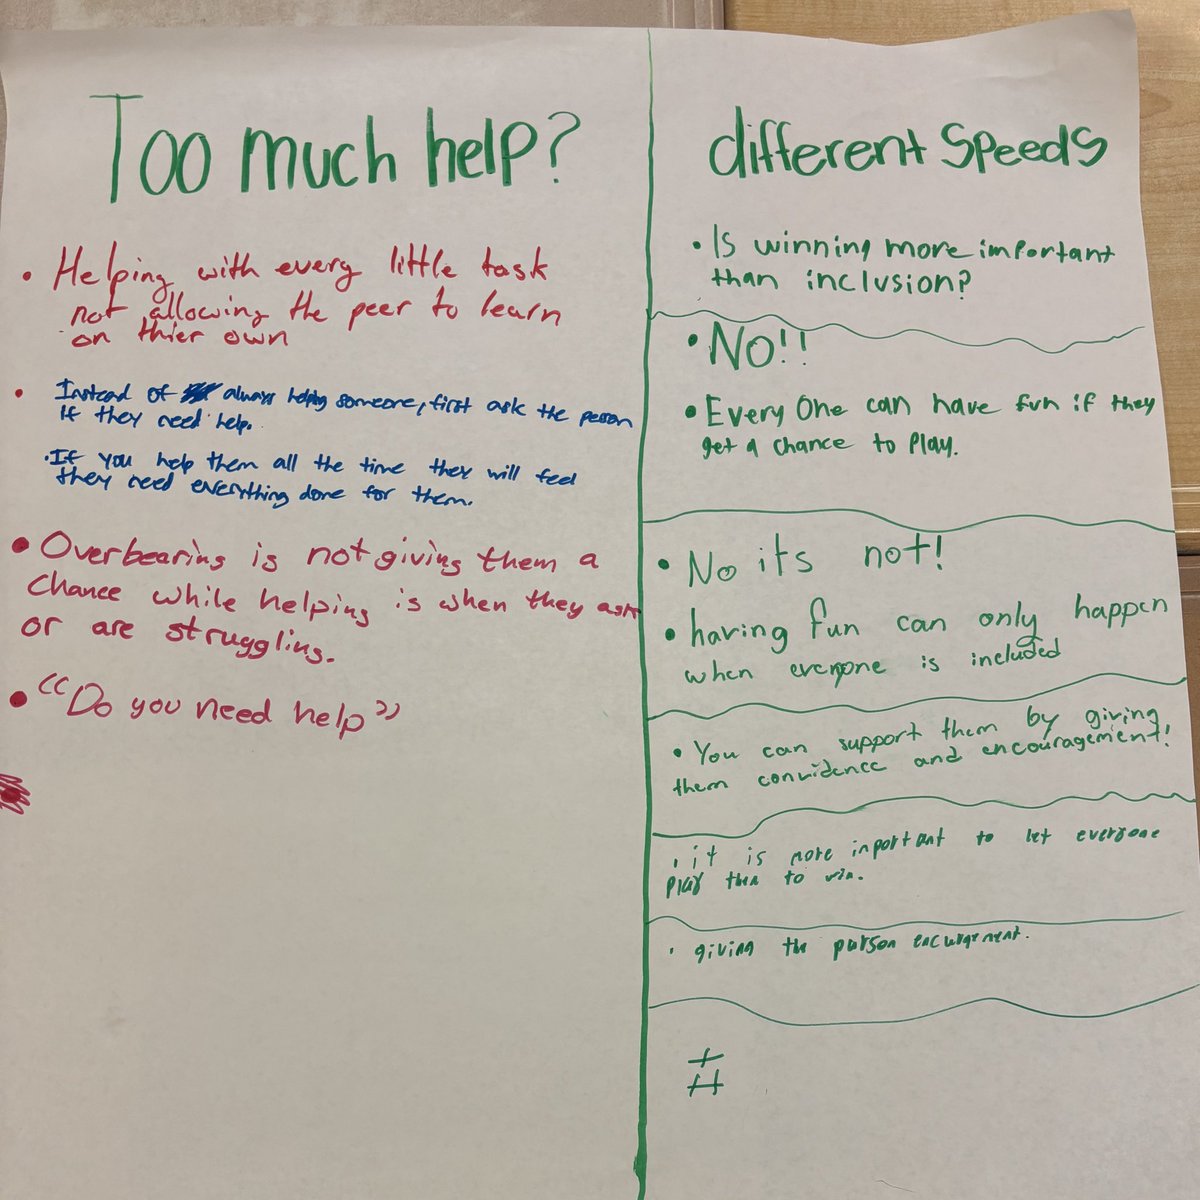 Too much help?
• Helping with every little task
not allowing the peer to learn
on thier own
• Instead of always helping someone, first ask the person
if they need help.
• If you help them all the time they will feel
they need everything done for them.
• Overbearing is not giving them a
chance while helping is when they ask
or are struggling.
• "Do you need help"
different speeds
• Is winning more important
than inclusion?
• NO!!
• Every One can have fun if they
get a chance to play.
• No its not!
• having fun can only happen
when everyone is included
• You can support them by giving
them convidence and encouragement!
• it is more inportant to let everyone
play then to win.
• giving the person encurgement.
#